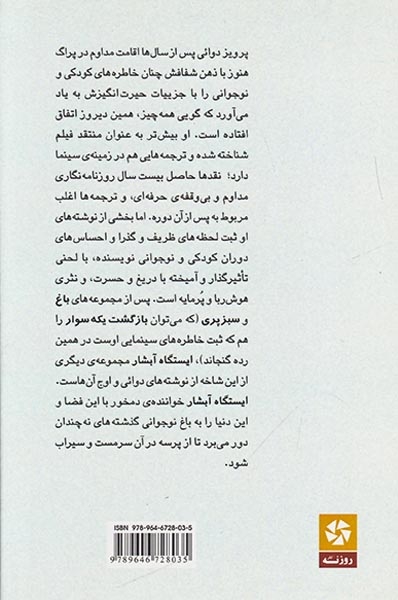 پرویز دوائی پس از سال‌ها اقامت مداوم در پراگ
هنوز با ذهن شفافش چنان خاطره‌های کودکی و
نوجوانی را با جزییات حیرت‌انگیزش به یاد
می‌آورد که گویی همه‌چیز، همین دیروز اتفاق
افتاده است. او بیش‌تر به عنوان منتقد فیلم
شناخته شده و ترجمه‌هایی هم در زمینه‌ی سینما
دارد؛ نقدها حاصل بیست سال روزنامه‌نگاری
مداوم و بی‌وقفه‌ی حرفه‌ای، و ترجمه‌ها اغلب
مربوط به پس از آن دوره. اما بخشی از نوشته‌های
او ثبت لحظه‌های ظریف و گذرا و احساس‌های
دوران کودکی و نوجوانی نویسنده، با لحنی
تأثیرگذار و آمیخته با دریغ و حسرت، و نثری
هوش‌ربا و پُرمایه است. پس از مجموعه‌های باغ
و سبزپری (که می‌توان بازگشت یکه سوار را
هم که ثبت خاطره‌های سینمایی اوست در همین
رده گنجاند)، ایستگاه آبشار مجموعه‌ی دیگری
از این شاخه از نوشته‌های دوائی و اوج آن‌هاست.
ایستگاه آبشار خواننده‌ی دمخور با این فضا و
این دنیا را به باغ نوجوانی گذشته‌های نه‌چندان
دور می‌برد تا از پرسه در آن سرمست و سیراب
شود.
ISBN 978-964-6728-03-5
9 789646 728035
روزنه